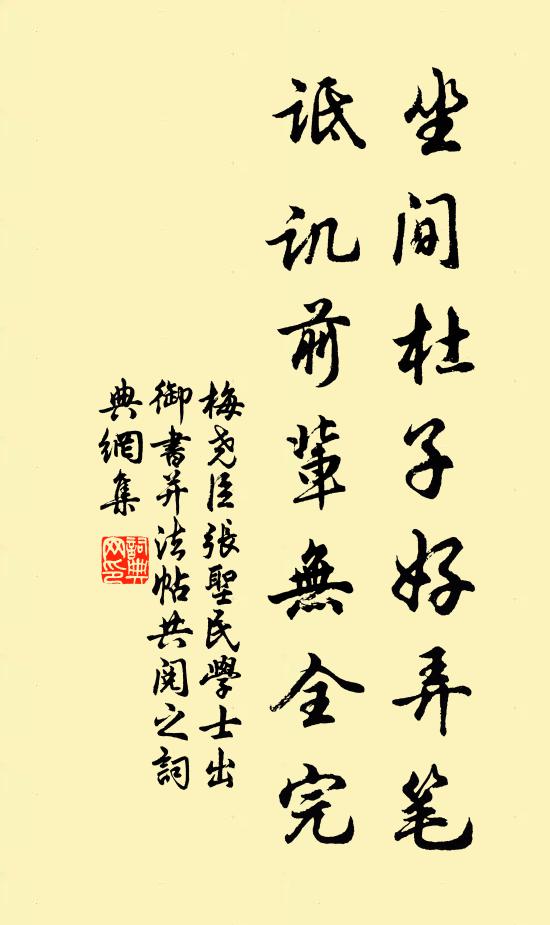 坐间杜子好弄笔
诋讥前輩無全完
梅尧臣張聖民學士出
御書并法帖共阅之詞
典網集
詞典
网印